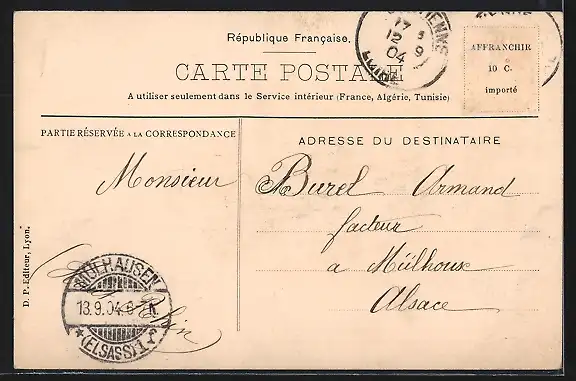 République Française.
CARTE POSTALE
A utiliser seulement dans le Service intérieur (France, Algérie, Tunisie)
AFFRANCHIR
10 C.
importé
17 3
12 9
04
LOIRE
PARTIE RÉSERVÉE A LA CORRESPONDANCE
ADRESSE DU DESTINATAIRE
Monsieur Burel Armand
facteur
a Mülhouse
Alsace
Rhin
MÜLHAUSEN
13.9.04.6-7 N.
(ELSASS) 1
D. P.-Editeur, Lyon.